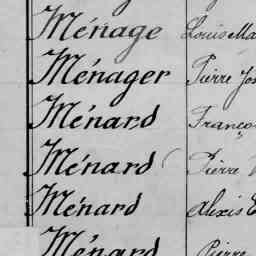 Ménage Louis Ma
Ménager Pierre Jos
Ménard Franço
Ménard Pierre
Ménard Alexis E
Ménard Pierre